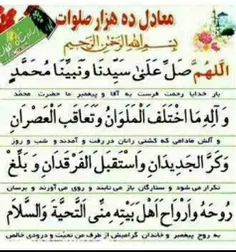 معادل ده هزار صلوات
بِسْمِ اللهِ الرَّحْمنِ الرَّحِیمِ
اَللّهُمَّ صَلِّ عَلیٰ سَیِّدِنا وَنَبِیِّنا مُحَمَّدٍ
بار خدایا رحمت فرست به آقا و پیغمبر ما حضرت محمد
وَ آلِهِ مَا اخْتَلَفَ الْمَلَوانُ وَتَعاقَبَ الْعَصْرانِ
و آلش مادامی که کشتی رانان در رفت و آمدند و شب و روز
وَکَرَّ الْجَدیدانِ وَاسْتَقْبَلَ الْفَرْقَدانِ وَ بَلِّغْ
تکرار می شود و ستارگان باز می تابند و روی می آورند و برسان
رُوحَهُ وَاَرْواحَ اَهْلِ بَیْتِهِ مِنِّی التَّحِیَّةَ وَالسَّلامَ
به روح پیغمبر و خاندان گرامیش از طرف من تحیت و درودی خالص